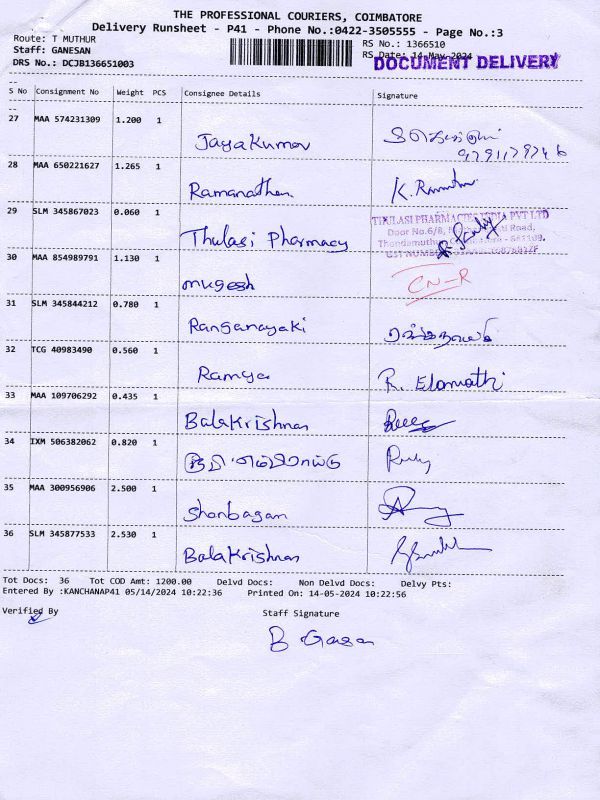 THE PROFESSIONAL COURIERS, COIMBATORE
Delivery Runsheet - P41 - Phone No.:0422-3505555 - Page No.:3
Route: T MUTHUR RS No.: 1366510
Staff: GANESAN RS Date: 14-May-2024
DOCUMENT DELIVERY
DRS No.: DCJB136651003
S No Consignment No Weight PCS Consignee Details Signature
27 MAA 574231309 1.200 1 Jayakumar
28 MAA 650221627 1.265 1 Ramanathan
29 SLM 345867023 0.060 1 Thulasi Pharmacy
TIKULASI PHARMACIES INDIA PVT LTD
Door No.6/8, Road,
30 MAA 854989791 1.130 1 mugesh CN-R
31 SLM 345844212 0.780 1 Ranganayaki
32 TCG 40983490 0.560 1 Ramya R. Elamathi
33 MAA 109706292 0.435 1 Balakrishnan
34 IXM 506382062 0.820 1
35 MAA 300956906 2.500 1 Shanbagam
36 SLM 345877533 2.530 1 Balakrishnan
Tot Docs: 36 Tot COD Amt: 1200.00 Delvd Docs: Non Delvd Docs: Delvy Pts:
Entered By :KANCHANAP41 05/14/2024 10:22:36 Printed On: 14-05-2024 10:22:56
Verified By Staff Signature